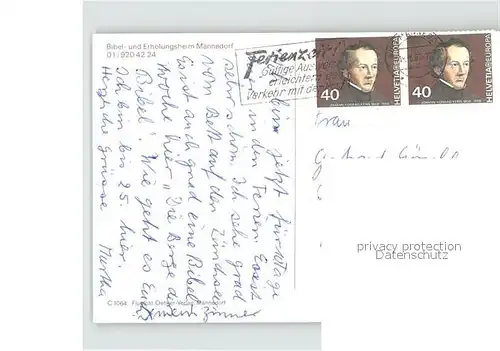 Bibel- und Erholungsheim Männedorf
01/920 42 24
Ferienzeit!
Gültige Ausweise
erleichtern den
Verkehr mit der
HELVETIA EUROPA
40
HELVETIA EUROPA
40
Bin jetzt für Tage
in den Ferien. Es ist
sehr schön. Ich sehe grad
vom Bett auf den Zürichsee.
Es ist auch grad eine Bibel-
woche hier „Die Berge der
Bibel". Wie geht es Euch?
Ich bin bis 25. hier.
Herzliche Grüsse Martha
meinem Zimmer
Frau
privacy protection
Datenschutz
C 1064
Verlag, Männedorf